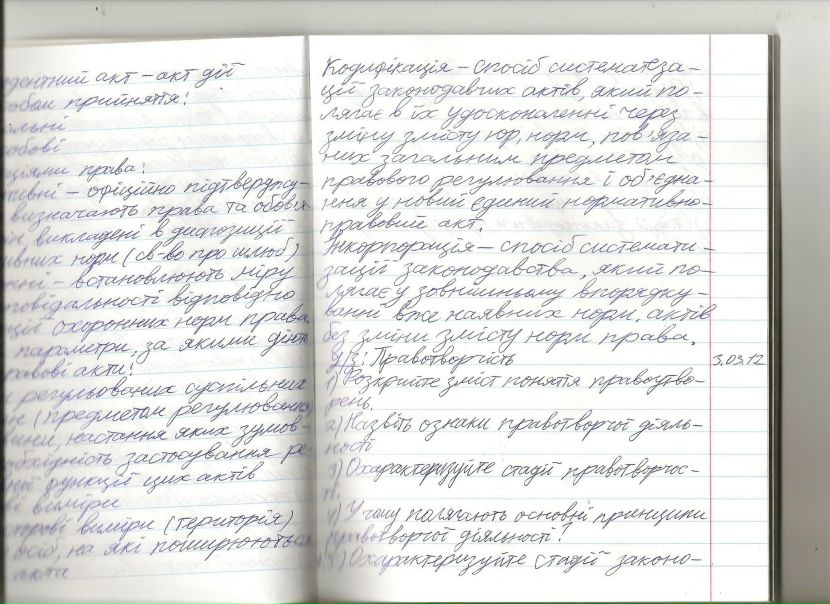 дентний акт – акт дії
прийняття:
ільні
обові
ціями права:
тивні – офіційно підтверджу-
визначають права та обов'я
викладені в диспозиції
ивних норм (св-во про шлюб)
нні – встановлюють міру
повідальності відповідно
ції охоронних норм права.
параметри, за якими діють
равові акти:
регульованих суспільних
ин (предметом регулювання)
настання яких зумов-
обхідність застосування ре-
ної функції цих актів
ві виміри
сторові виміри (територія)
осіб, на які поширюються
акта
Кодифікація – спосіб систематеза-
ції законодавчих актів, який по-
лягає в їх удосконаленні через
зміну змісту юр. норм, пов'яза-
них загальним предметом
правового регулювання і об'єдна-
ння у новий єдиний нормативно-
правовий акт.
Інкорпорація – спосіб системати-
зації законодавства, який по-
лягає у зовнішньому впорядку-
ванні вже наявних норм. актів
без зміни змісту норм права.
Д/з: Правотворчість 3.03.12
1) Розкрийте зміст поняття правоутво-
рень.
2) Назвіть ознаки правотворчої діяль-
ності
3) Охарактеризуйте стадії правотворчос-
ті.
4) У чому полягають основні принципи
правотворчої діяльності?
5) Охарактеризуйте стадії законо-